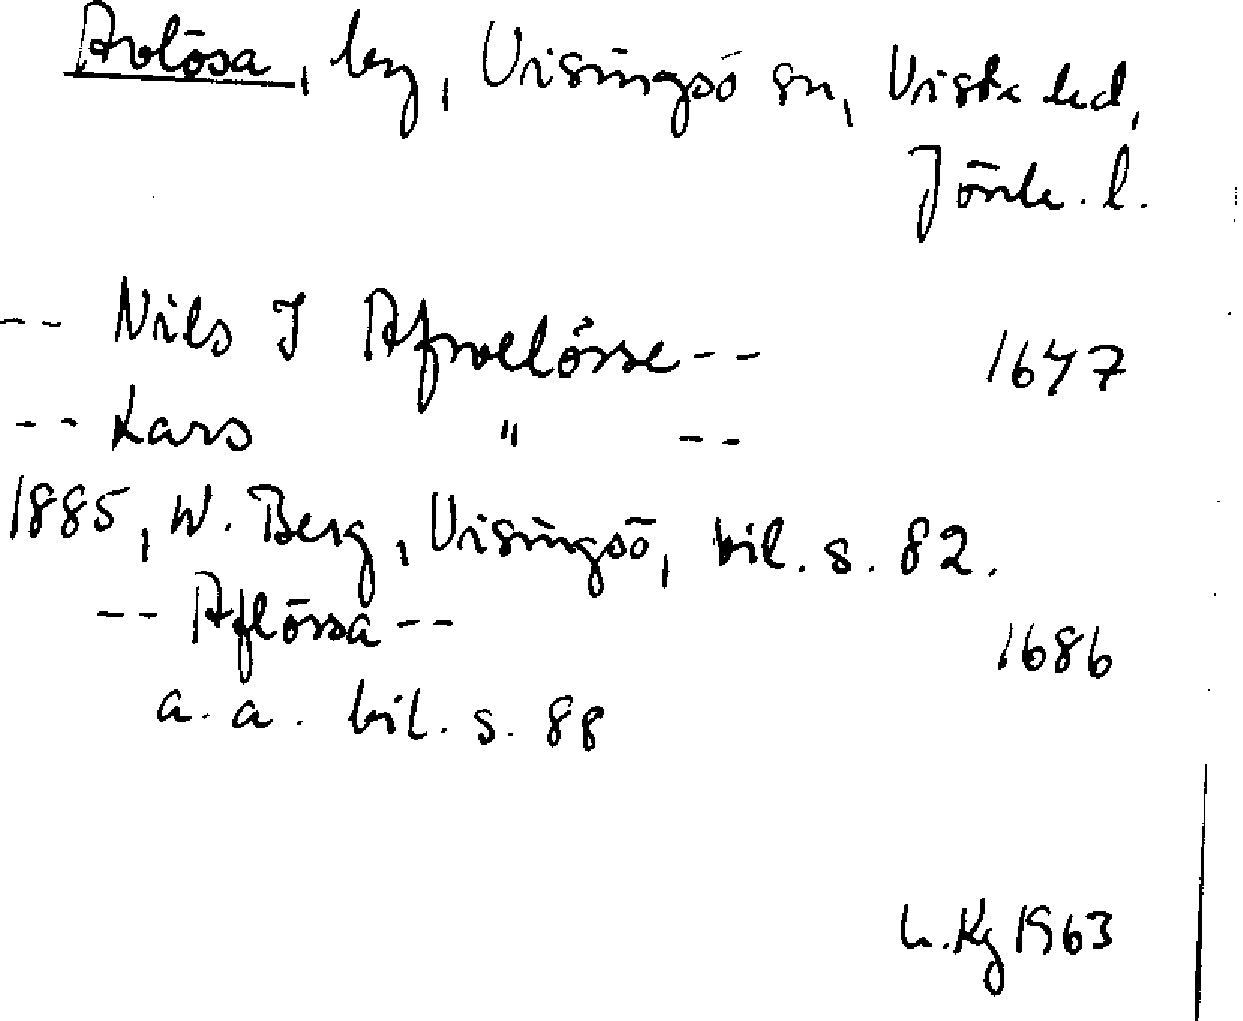 Avlösa, by, Visingsö sn, Vista hd,
Jönk. l.
-- Nils I Afvelösse -- 1647
-- Lars " --
1885, W. Berg, Visingsö, bil. s. 82.
-- Aflössa -- 1686
a. a. bil. s. 88
Kg 1963